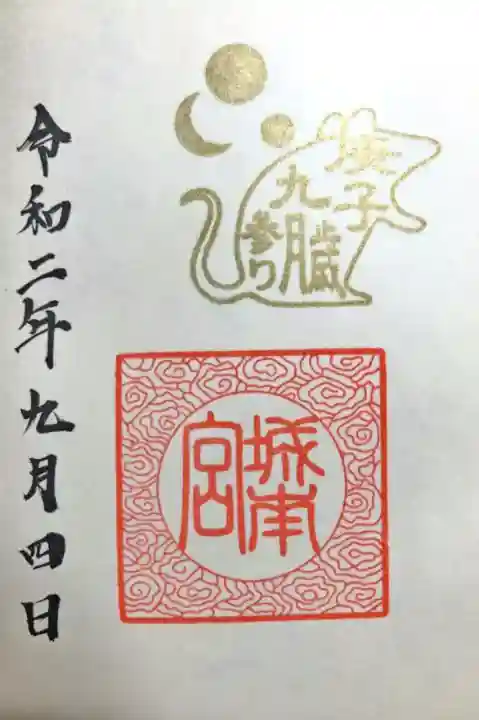 庚子歳
九月
参り
城南宮
令和二年九月四日